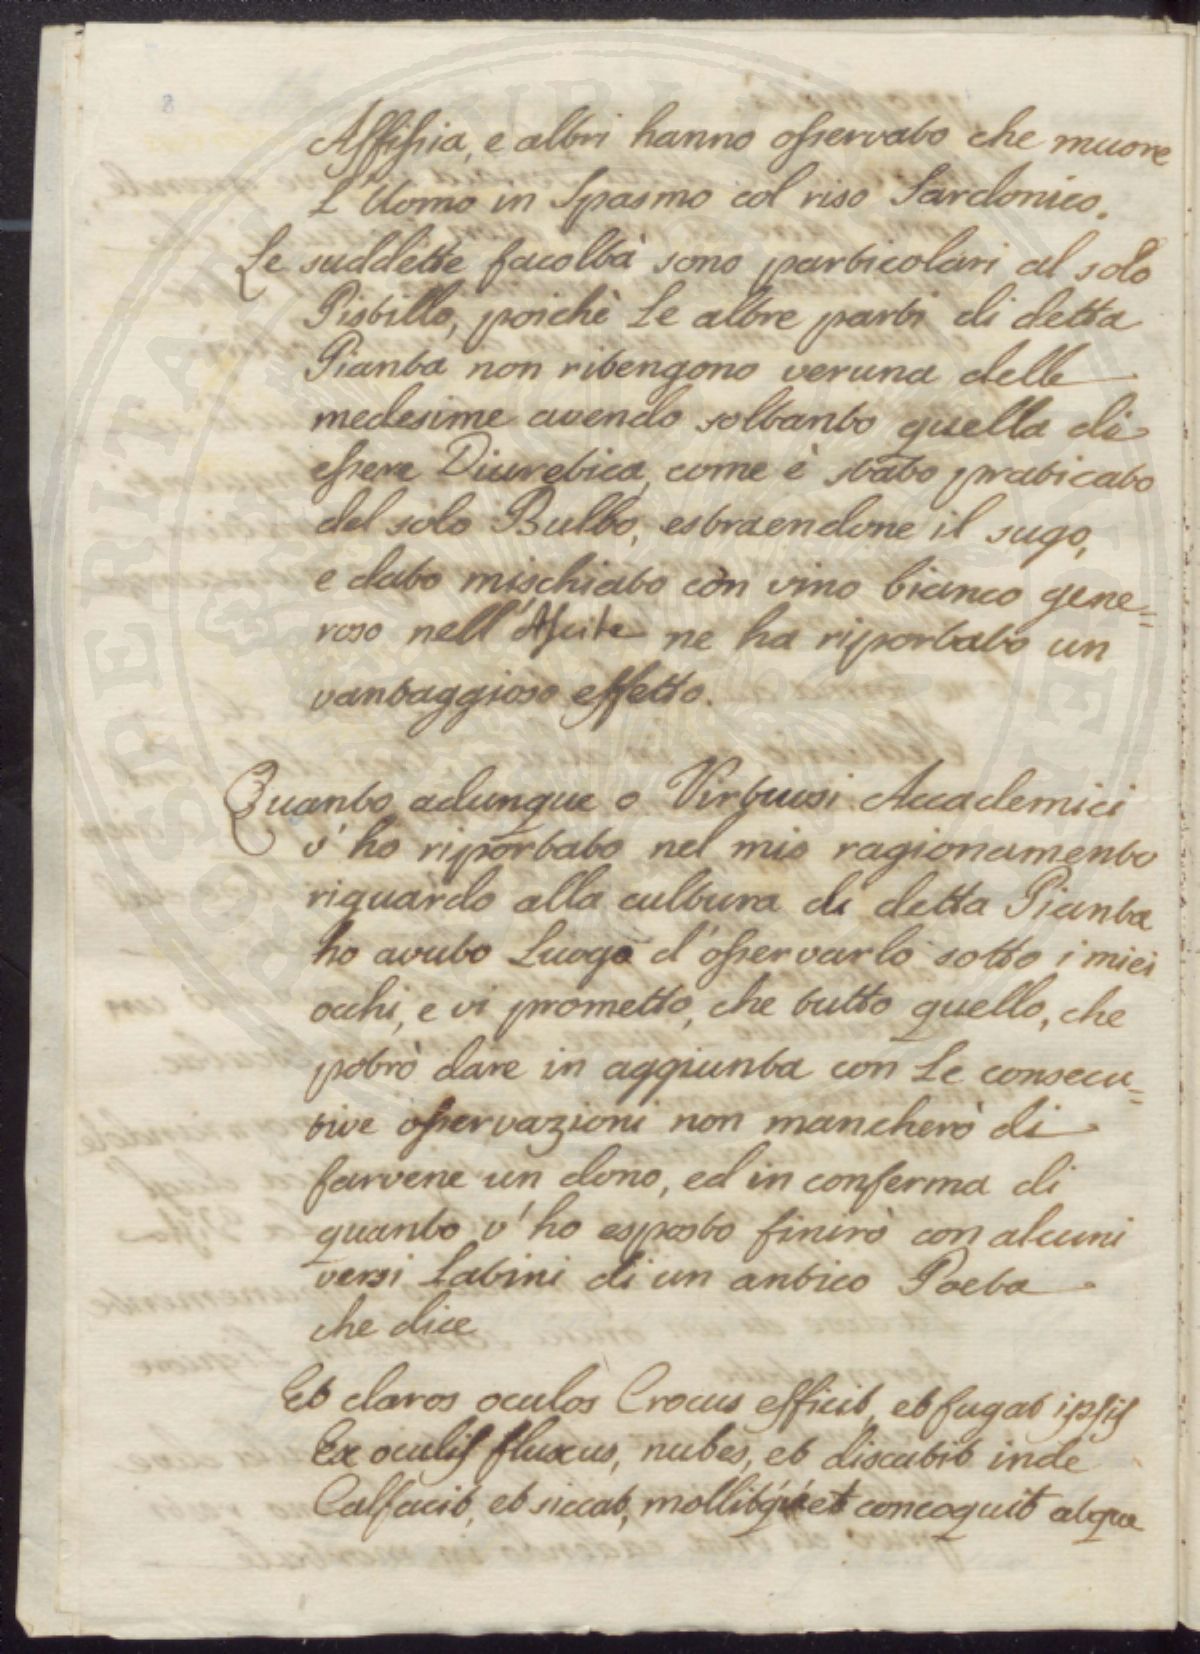 Affissia, e altri hanno osservato che muore
L'Uomo in Spasmo col riso Sardonico.
Le suddette facoltà sono particolari al solo
Pistillo, poichè Le altre parti di detta
Pianta non ritengono veruna delle
medesime avendo soltanto quella di
essere Diuretica, come è stato praticato
del solo Bulbo, estraendone il sugo,
e dato mischiato còn vino bianco gene=
roso nell'Ascite ne ha riportato un
vantaggioso effetto.
Quanto adunque o Virtuosi Accademici
v'ho riportato nel mio ragionamento
riguardo alla cultura di detta Pianta
ho avuto Luogo d'osservarlo sotto i miei
occhi, e vi prometto, che tutto quello, che
potrò dare in aggiunta con Le consecu=
tive osservazioni non mancherò di
farvene un dono, ed in conferma di
quanto v'ho esposto finirò con alcuni
versi Latini di un antico Poeta
che dice
Et claros oculos Crocus efficit, et fugat ipsis
Ex oculis fluxus, nubes, et discutit inde
Calfacit, et siccat, mollitqu' et concoquit atque